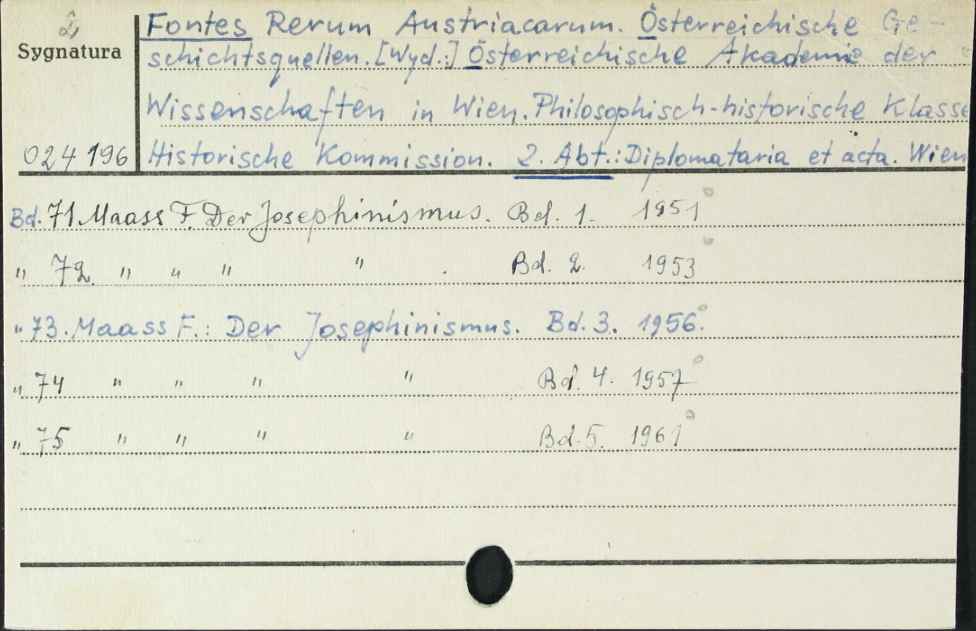 Sygnatura
024 196
Fontes Rerum Austriacarum. Österreichische Ge-
schichtsquellen. [Wyd.:] Österreichische Akademie der
Wissenschaften in Wien. Philosophisch-historische Klasse
Historische Kommission. 2. Abt.: Diplomataria et acta. Wien
Bd. 71. Maass F. Der Josephinismus. Bd. 1. 1951
" 72. " " " " . Bd. 2. 1953
" 73. Maass F.: Der Josephinismus. Bd. 3. 1956.
" 74 " " " " Bd. 4. 1957
" 75 " " " " Bd. 5. 1961